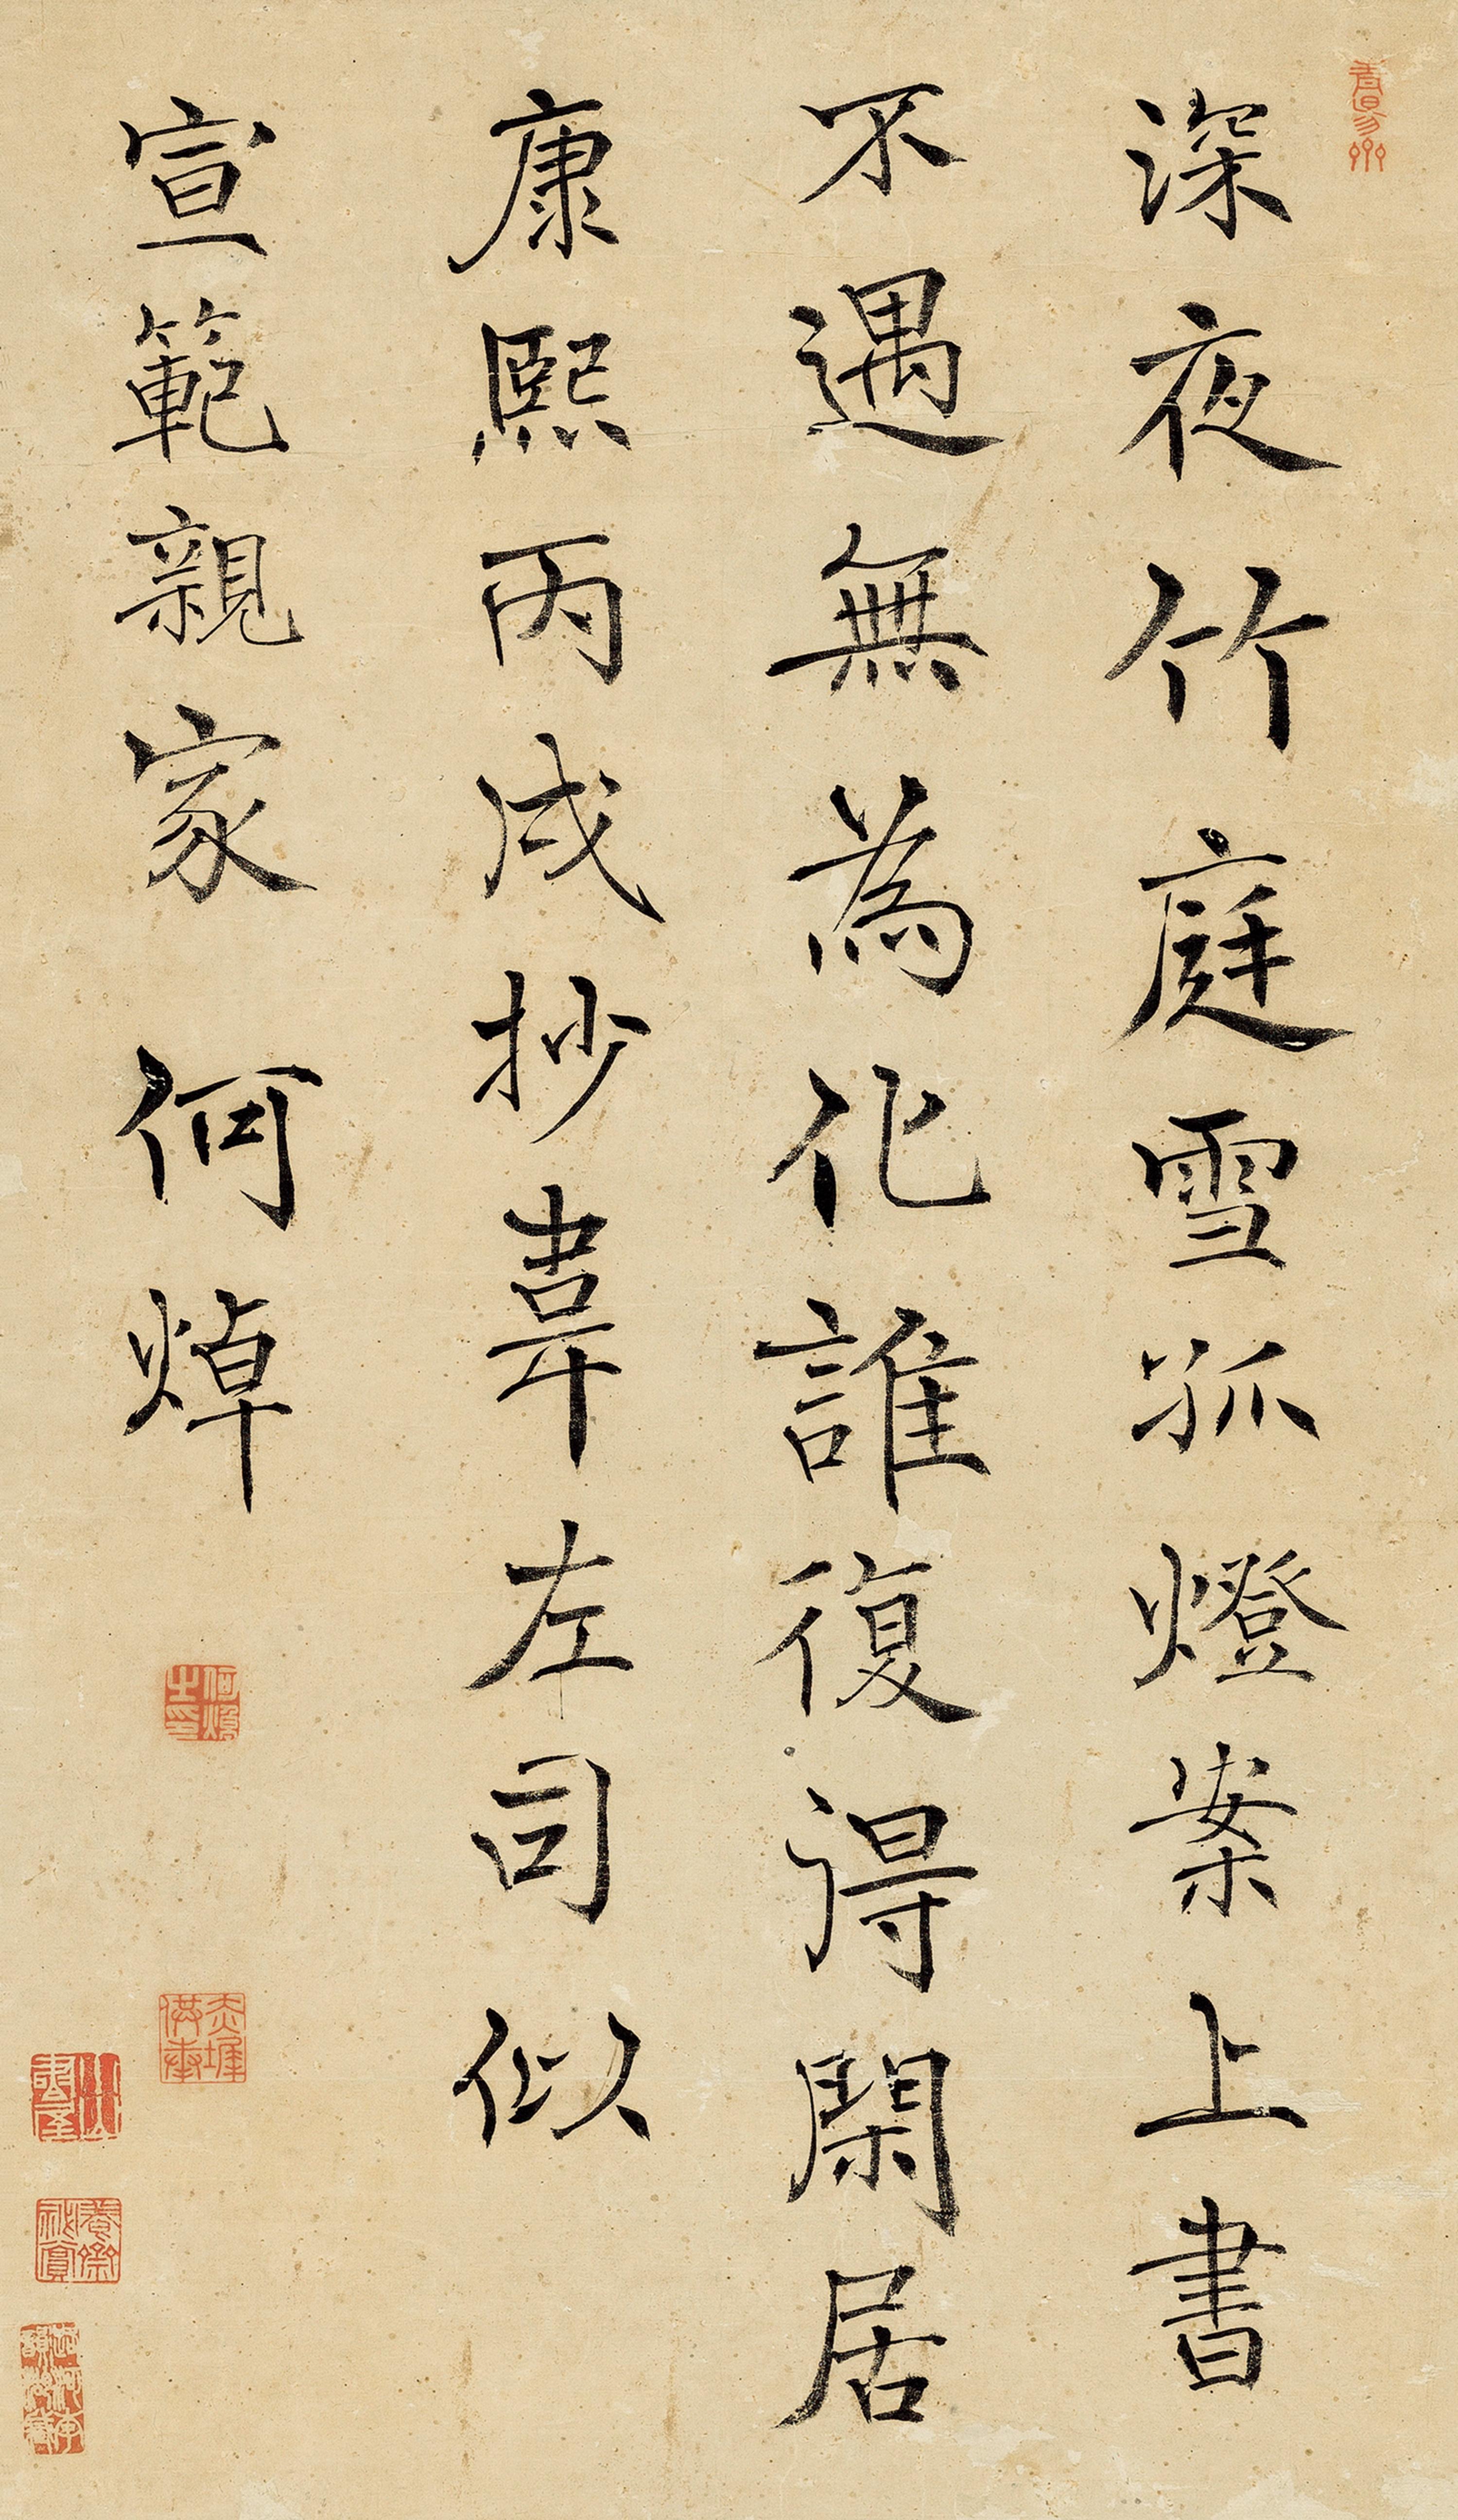 深夜竹庭雪孤燈案上書
不遇無為化誰復得閑居
康熙丙戌抄韋左司似
宣範親家 何焯
何焯之印